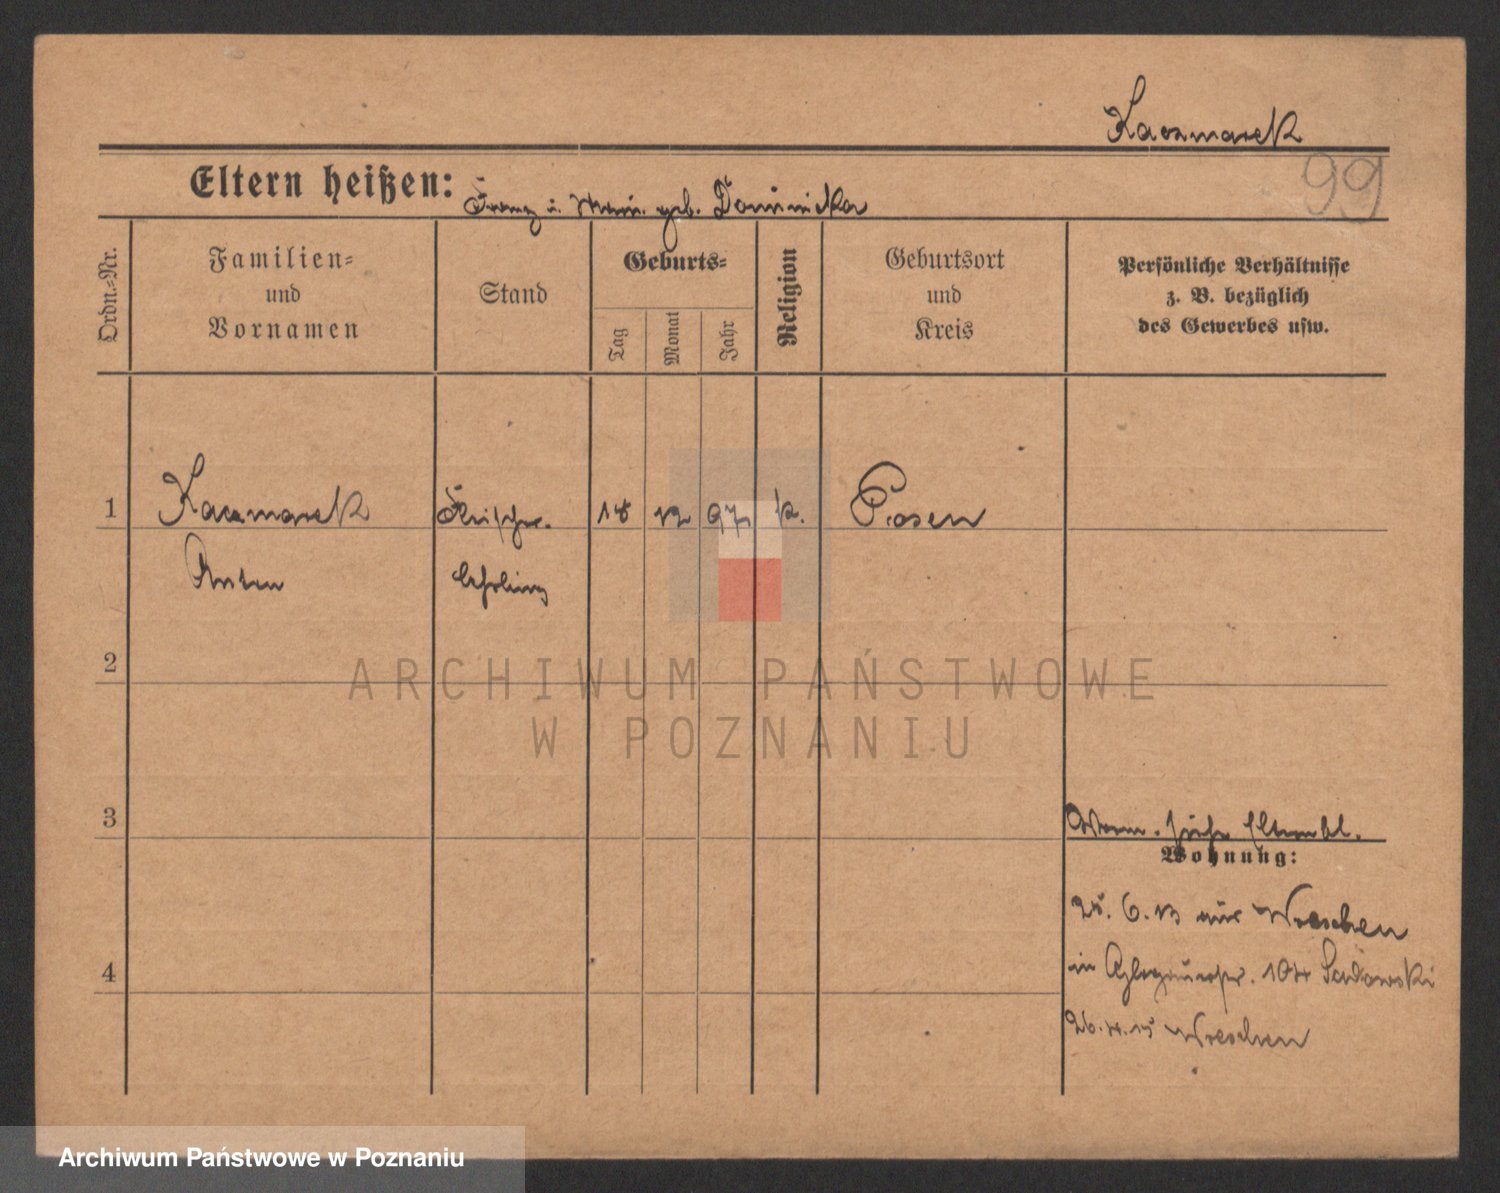 Kaczmarek
99
Eltern heißen: Franz u. Marie geb. Dominicka
Ordn.-Nr.
Familien-
und
Vornamen
Stand
Geburts-
Tag
Monat
Jahr
Religion
Geburtsort
und
Kreis
Persönliche Verhältnisse
z. B. bezüglich
des Gewerbes usw.
1 Kaczmarek 18 12 97 k. Posen
Anton lehrling
2
ARCHIWUM PAŃSTWOWE
W POZNANIU
3
Wohnung:
25. 6. 13 aus Wreschen
4
in 104 Sadowski
26. 4. 15 Wreschen
Archiwum Państwowe w Poznaniu